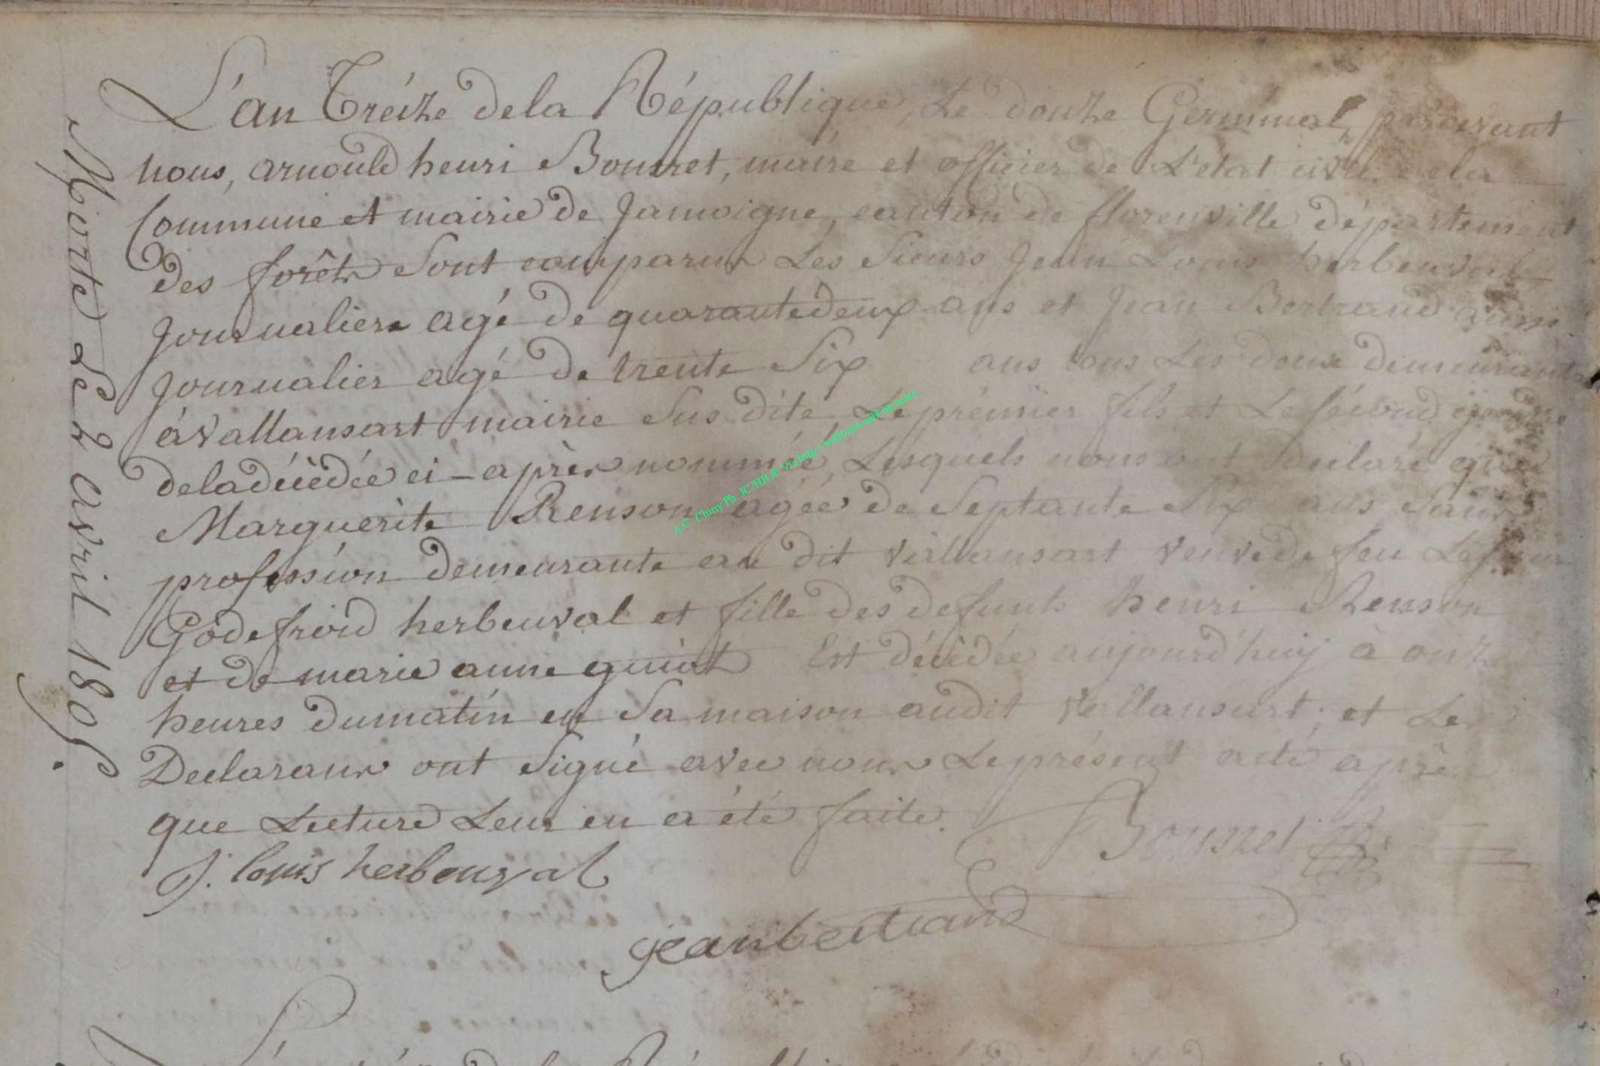 Morte Le 2 avril 1805.
L'an Tréize dela République, Le douze Germinal, pardevant
nous, arnould henri Bonnet, maire et officier de L'état civil dela
Commune et mairie de Jamoigne, canton de florenville département
des forêts Sont comparus Les Sieurs Jean Louis herbeuval
Journaliers agé de quarantedeux ans et Jean Bertrand aussi
Journalier agé de trente Six ans tous Les deux demeurant
à vallansart mairie Sus dite, Le prémier fils et Le sécond gendre
dela décédée ci-après nommée, Lesquels nous ont déclaré que
Marguerite Renson agée de Septante Six ans, Sans
profession demeurante au dit vallansart veuve de feu
Godefroid herbeuval et fille des defunts henri Renson
et de marie anne guiot Est décédée aujourd'huy à onze
heures dumatin en Sa maison audit vallansart; et Les
Declarans ont Signé avec nous Le présent acte après
que Lecture Leur en a été faite.
Bonnet
j. louis herbouval
jean bertrand